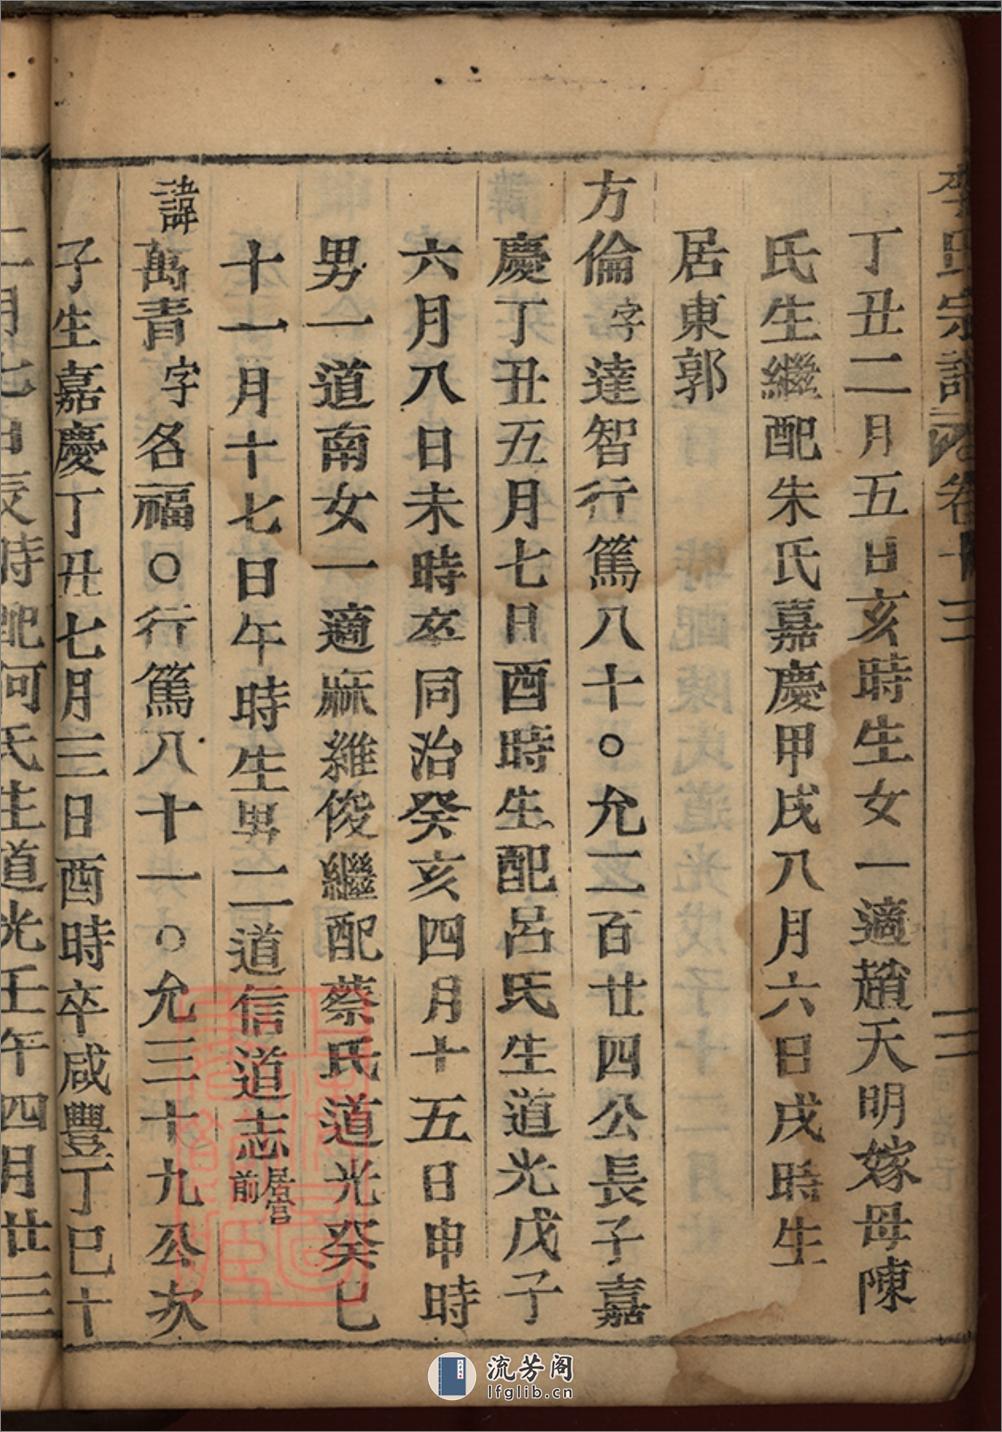 李氏宗譜 卷十三 二
丁丑二月五日亥時生女一適趙天明嫁母陳
氏生繼配朱氏嘉慶甲戌八月六日戌時生
居東郭
方倫字達智行篤八十○允二百廿四公長子嘉
慶丁丑五月七日酉時生配呂氏生道光戊子
六月八日未時卒同治癸亥四月十五日申時
男一道南女一適麻維俊繼配蔡氏道光癸巳
十一月十七日午時生男二道信道志居官前
諱萬青字名福○行篤八十一○允三十九公次
子生嘉慶丁丑七月三日酉時卒咸豐丁巳十
二月七日辰時配何氏生道光壬午四月廿三
流芳阁
lfglib.cn